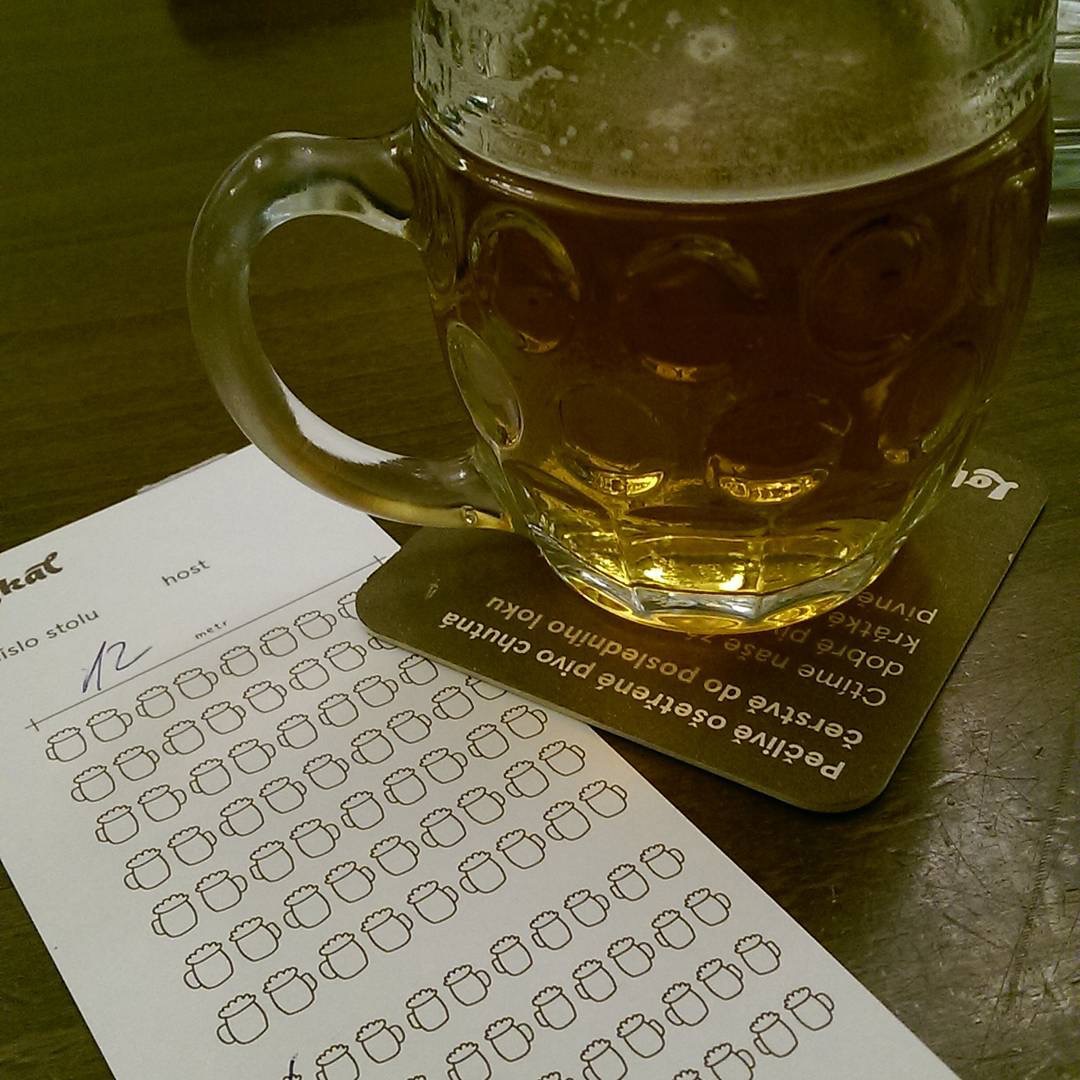 host
číslo stolu
12
metr
Pečlivě ošetřené pivo chutná
čerstvě do posledního loku
Ctíme naše
dobré
krátké
pivně